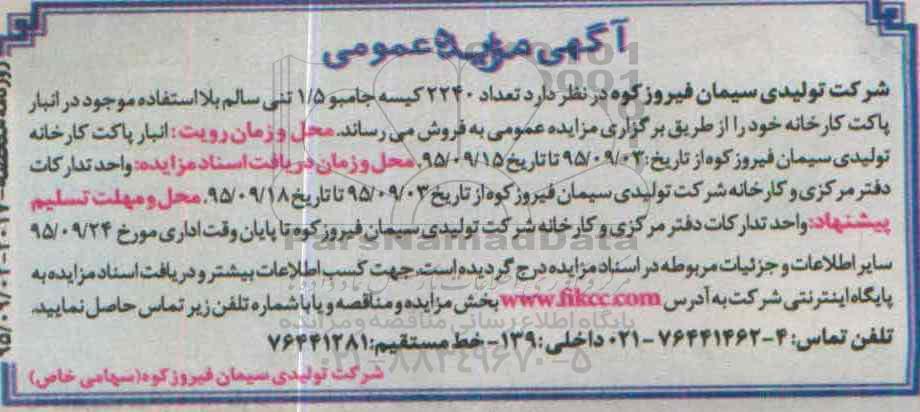 آگهی مزایده عمومی
شرکت تولیدی سیمان فیروزکوه در نظر دارد تعداد ۲۲۴۰ کیسه جامبو ۱/۵ تنی سالم بلااستفاده موجود در انبار
پاکت کارخانه خود را از طریق برگزاری مزایده عمومی به فروش می رساند. محل و زمان رویت: انبار پاکت کارخانه
تولیدی سیمان فیروزکوه از تاریخ: ۹۵/۰۹/۰۳ تا تاریخ ۹۵/۰۹/۱۵. محل و زمان دریافت اسناد مزایده: واحد تدارکات
دفتر مرکزی و کارخانه شرکت تولیدی سیمان فیروزکوه از تاریخ ۹۵/۰۹/۰۳ تا تاریخ ۹۵/۰۹/۱۸. محل و مهلت تسلیم
پیشنهاد: واحد تدارکات دفتر مرکزی و کارخانه شرکت تولیدی سیمان فیروزکوه تا پایان وقت اداری مورخ ۹۵/۰۹/۲۴
سایر اطلاعات و جزئیات مربوطه در اسناد مزایده درج گردیده است. جهت کسب اطلاعات بیشتر و دریافت اسناد مزایده به
پایگاه اینترنتی شرکت به آدرس www.fikcc.com بخش مزایده و مناقصه و یا با شماره تلفن زیر تماس حاصل نمایید.
تلفن تماس: ۴-۷۶۴۴۱۴۶۲-۰۲۱ داخلی: ۱۳۹- خط مستقیم: ۷۶۴۴۱۲۸۱
شرکت تولیدی سیمان فیروزکوه (سهامی خاص)
ParsNamadData
پایگاه اطلاع رسانی مناقصه و مزایده
۰۲۱-۸۸۳۴۹۶۷۰-۵